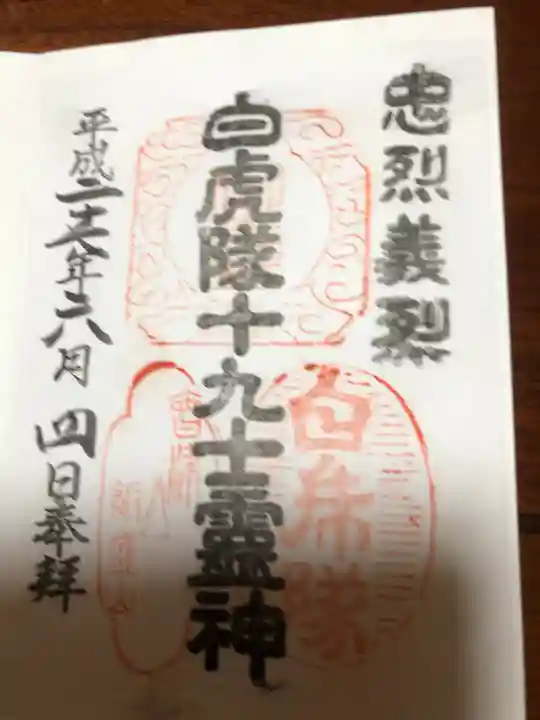 忠烈義烈
白虎隊十九士霊神
平成二十八年六月四日奉拝
白虎隊
飯盛山